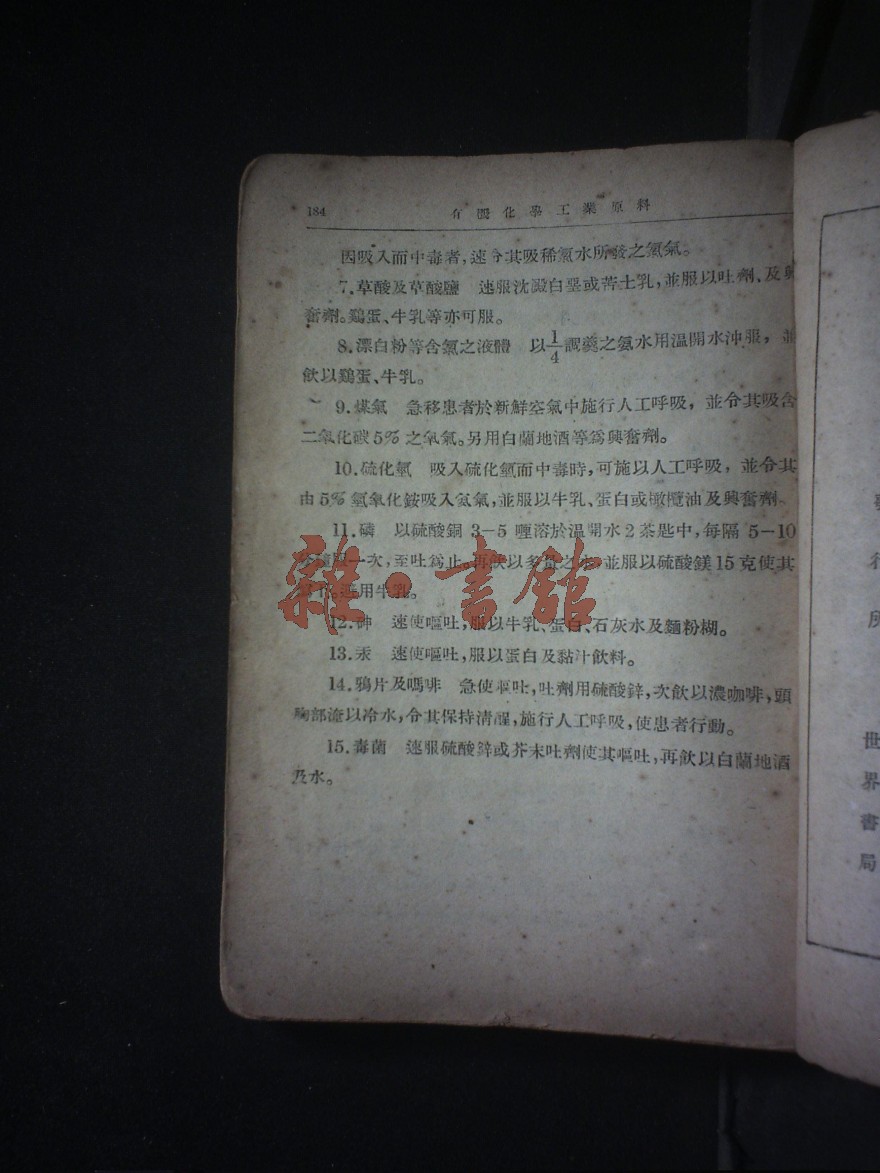 184
有機化學工業原料
因吸入而中毒者,速令其吸稀氨水所發之氨氣。
7.草酸及草酸鹽 速服沈澱白堊或苦土乳,並服以吐劑、及興
奮劑。鷄蛋、牛乳等亦可服。
8.漂白粉等含氯之液體 以1/4調羹之氨水用溫開水沖服,並
飲以鷄蛋、牛乳。
9.煤氣 急移患者於新鮮空氣中施行人工呼吸,並令其吸含
二氧化碳5%之氧氣。另用白蘭地酒等爲興奮劑。
10.硫化氫 吸入硫化氫而中毒時,可施以人工呼吸,並令其
由5%氫氧化銨吸入氨氣,並服以牛乳、蛋白或橄欖油及興奮劑。
11.磷 以硫酸銅3-5喱溶於溫開水2茶匙中,每隔5-10
一次,至吐爲止。再飲以多量之水,並服以硫酸鎂15克使其
用牛乳。
12.砷 速使嘔吐,服以牛乳、蛋白、石灰水及麵粉糊。
13.汞 速使嘔吐,服以蛋白及黏汁飲料。
14.鴉片及嗎啡 急使嘔吐,吐劑用硫酸鋅,次飲以濃咖啡,頭
胸部淹以冷水,令其保持清醒,施行人工呼吸,使患者行動。
15.毒菌 速服硫酸鋅或芥末吐劑使其嘔吐,再飲以白蘭地酒
及水。
雜·書館
行所
世界書局